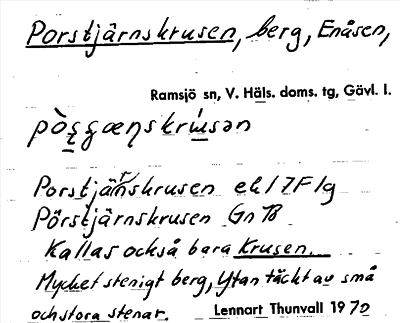 Porstjärnskrusen, berg, Enåsen,
Ramsjö sn, V. Häls. doms. tg, Gävl. l.
Porstjärnskrusen ek 17F1g
Pörstjärnskrusen Gn TB
Kallas också bara Krusen.
Mycket stenigt berg, Ytan täckt av små
och stora stenar. Lennart Thunvall 1970